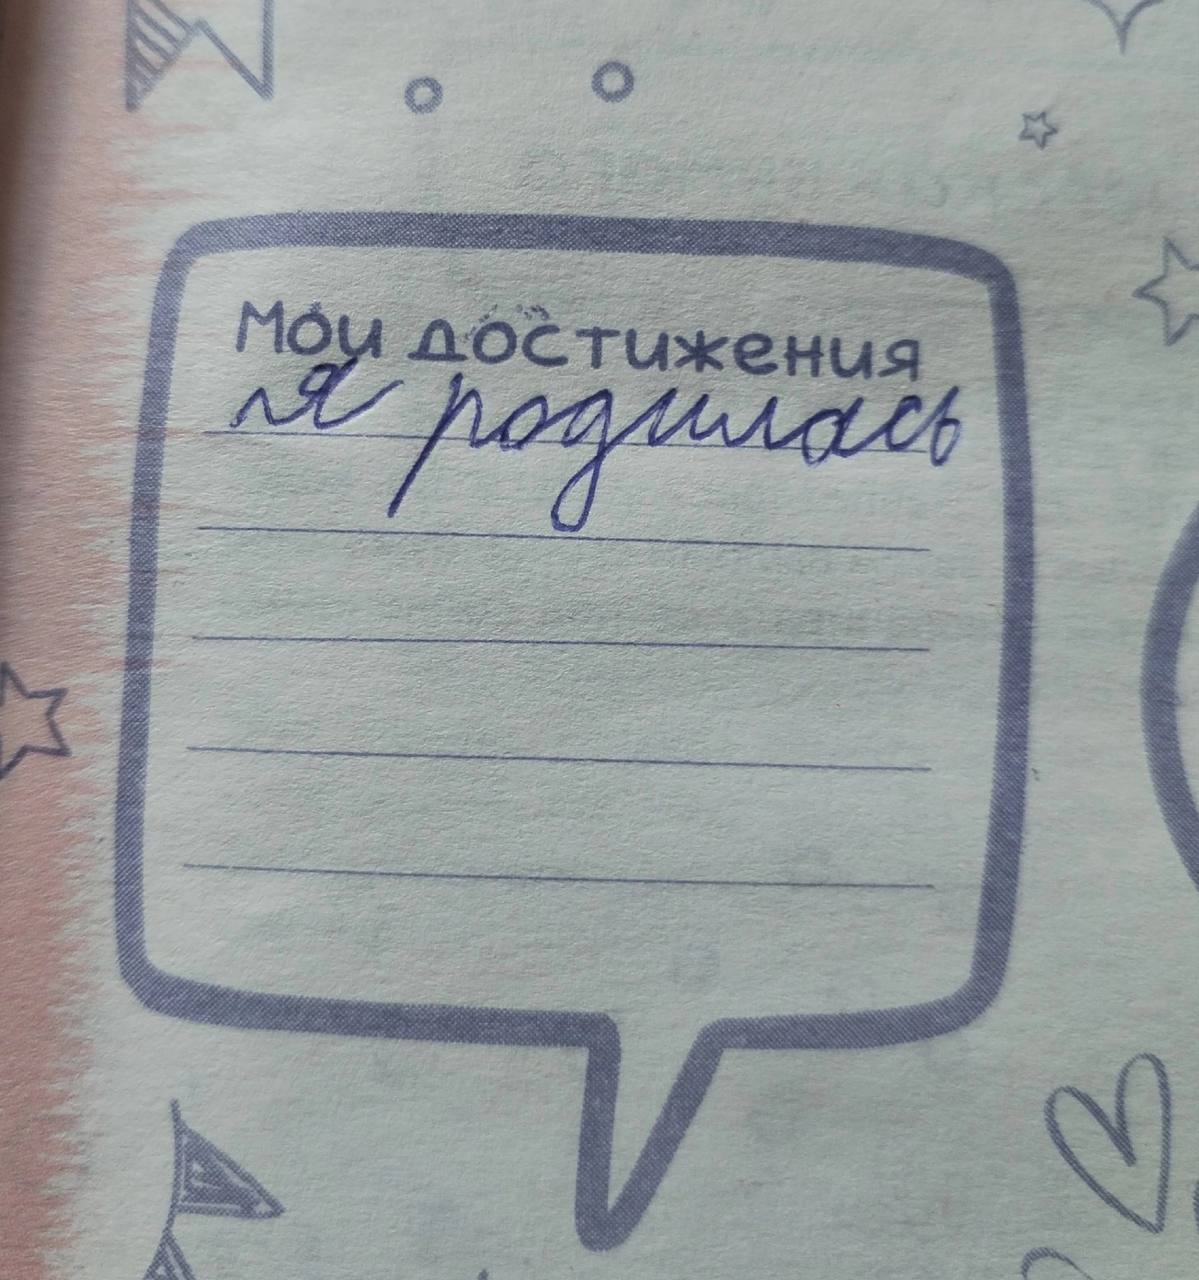 Мои достижения
я родилась